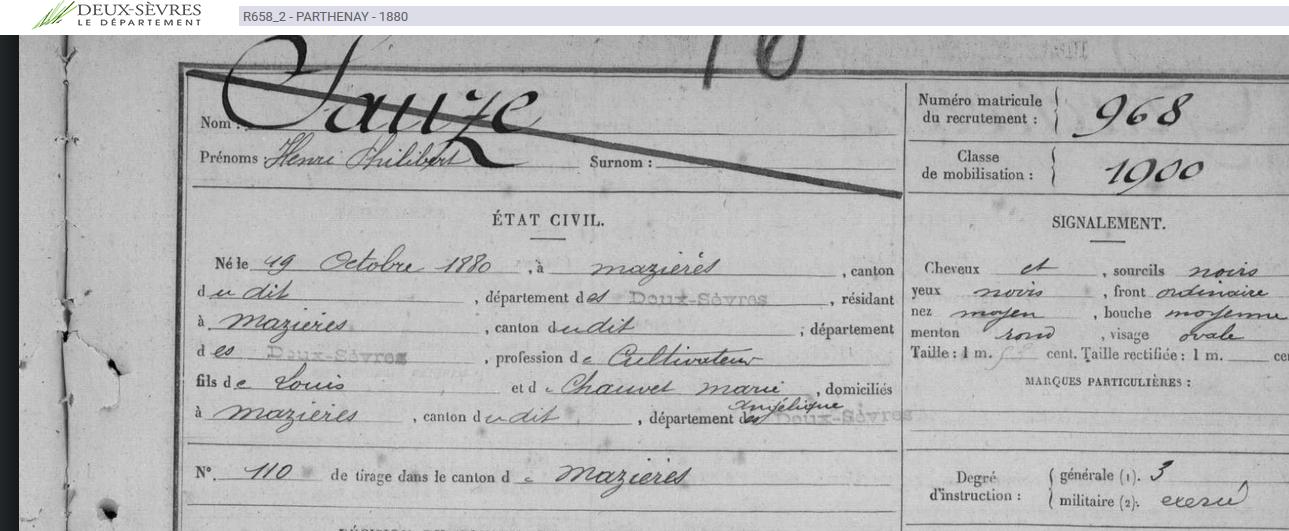 DEUX-SÈVRES
LE DÉPARTEMENT
R658_2 - PARTHENAY - 1880
Nom : Sauze
Prénoms : Henri Philibert Surnom :
Numéro matricule
du recrutement : 968
Classe
de mobilisation : 1900
ÉTAT CIVIL.
Né le 19 Octobre 1880, à mazières, canton
du dit, département des Deux-Sèvres, résidant
à Mazières, canton dudit, département
des Deux-Sèvres, profession de Cultivateur
fils de Louis et de Chauvet marie Angélique, domiciliés
à mazières, canton dudit, département des Deux-Sèvres
N°. 110 de tirage dans le canton de Mazières
SIGNALEMENT.
Cheveux et, sourcils noirs
yeux noirs, front ordinaire
nez moyen, bouche moyenne
menton rond, visage ovale
Taille : 1 m. cent. Taille rectifiée : 1 m. ce
MARQUES PARTICULIÈRES :
Degré
d'instruction :
générale (1). 3
militaire (2). exercé